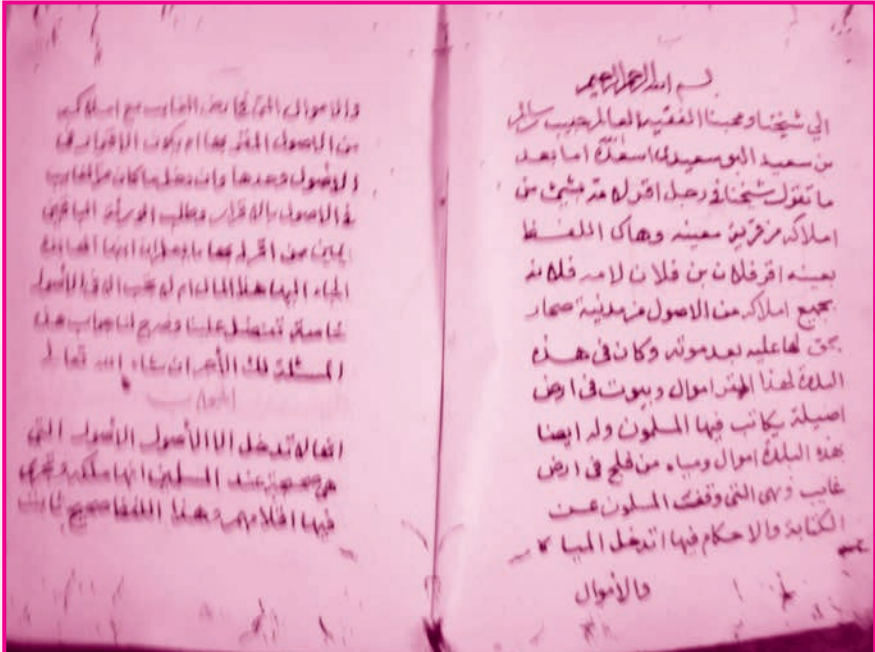 بسم الله الرحمن الرحيم
الي شيخنا ومحبنا الفقيه العالم حبيب بن سالم
بن سعيد البوسعيدي اسعده اما بعد
ما تقول شيخنا في رجل اقر له بثمن من
املاكه من قرية معينه وهاك اللفظ
بعينه اقر فلان بن فلان لامه فلانه
بجميع املاكه من الاصول من مدينة صحار
بحق لها عليه بعد موته وكان في هذه
البلدة لهذا المقر اموال وبيوت في ارض
اصيلة يكاتب فيها المسلمون وله ايضا
بهذه البلدة اموال ومياه من فلج في ارض
غايب وهي التي وقفت المسلمون عن
الكتابة والاحكام فيها اتدخل المياه
والأموال
والاموال التي في ارض الغايب مع املاكه
من الاصول المقر بها ام يكون الاقرار في
الاصول وحدها وان دخل ما كان من الغايب
في الاصول بالاقرار وطلب الورثة الباقين
يمين من اقر له بها
الجاء اليها هذا المال ام له يجب الا في الأصول
خاصة تفضل علينا وصرح لنا جواب هذه
المسئلة ولك الأجر ان شاء الله تعالى
الجواب
انه لا تدخل الا الأصول الأصول التي
هي صحيحة عند المسلمين انها ملكه وتجري
فيها اقلامهم وهذا اللفظ صحيح ثابت